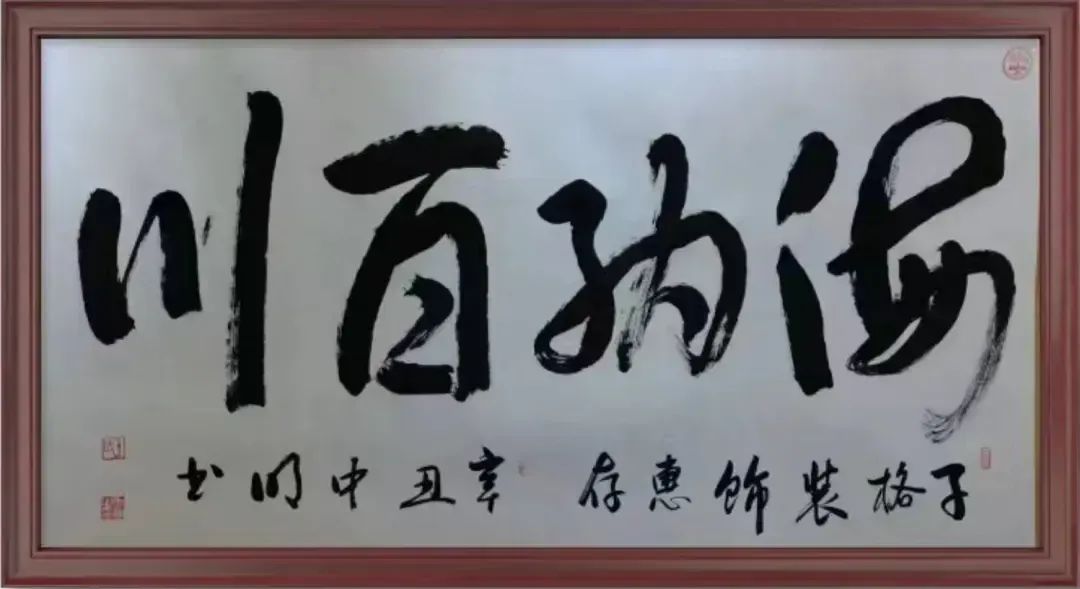 海纳百川
子格装饰惠存 辛丑中明书